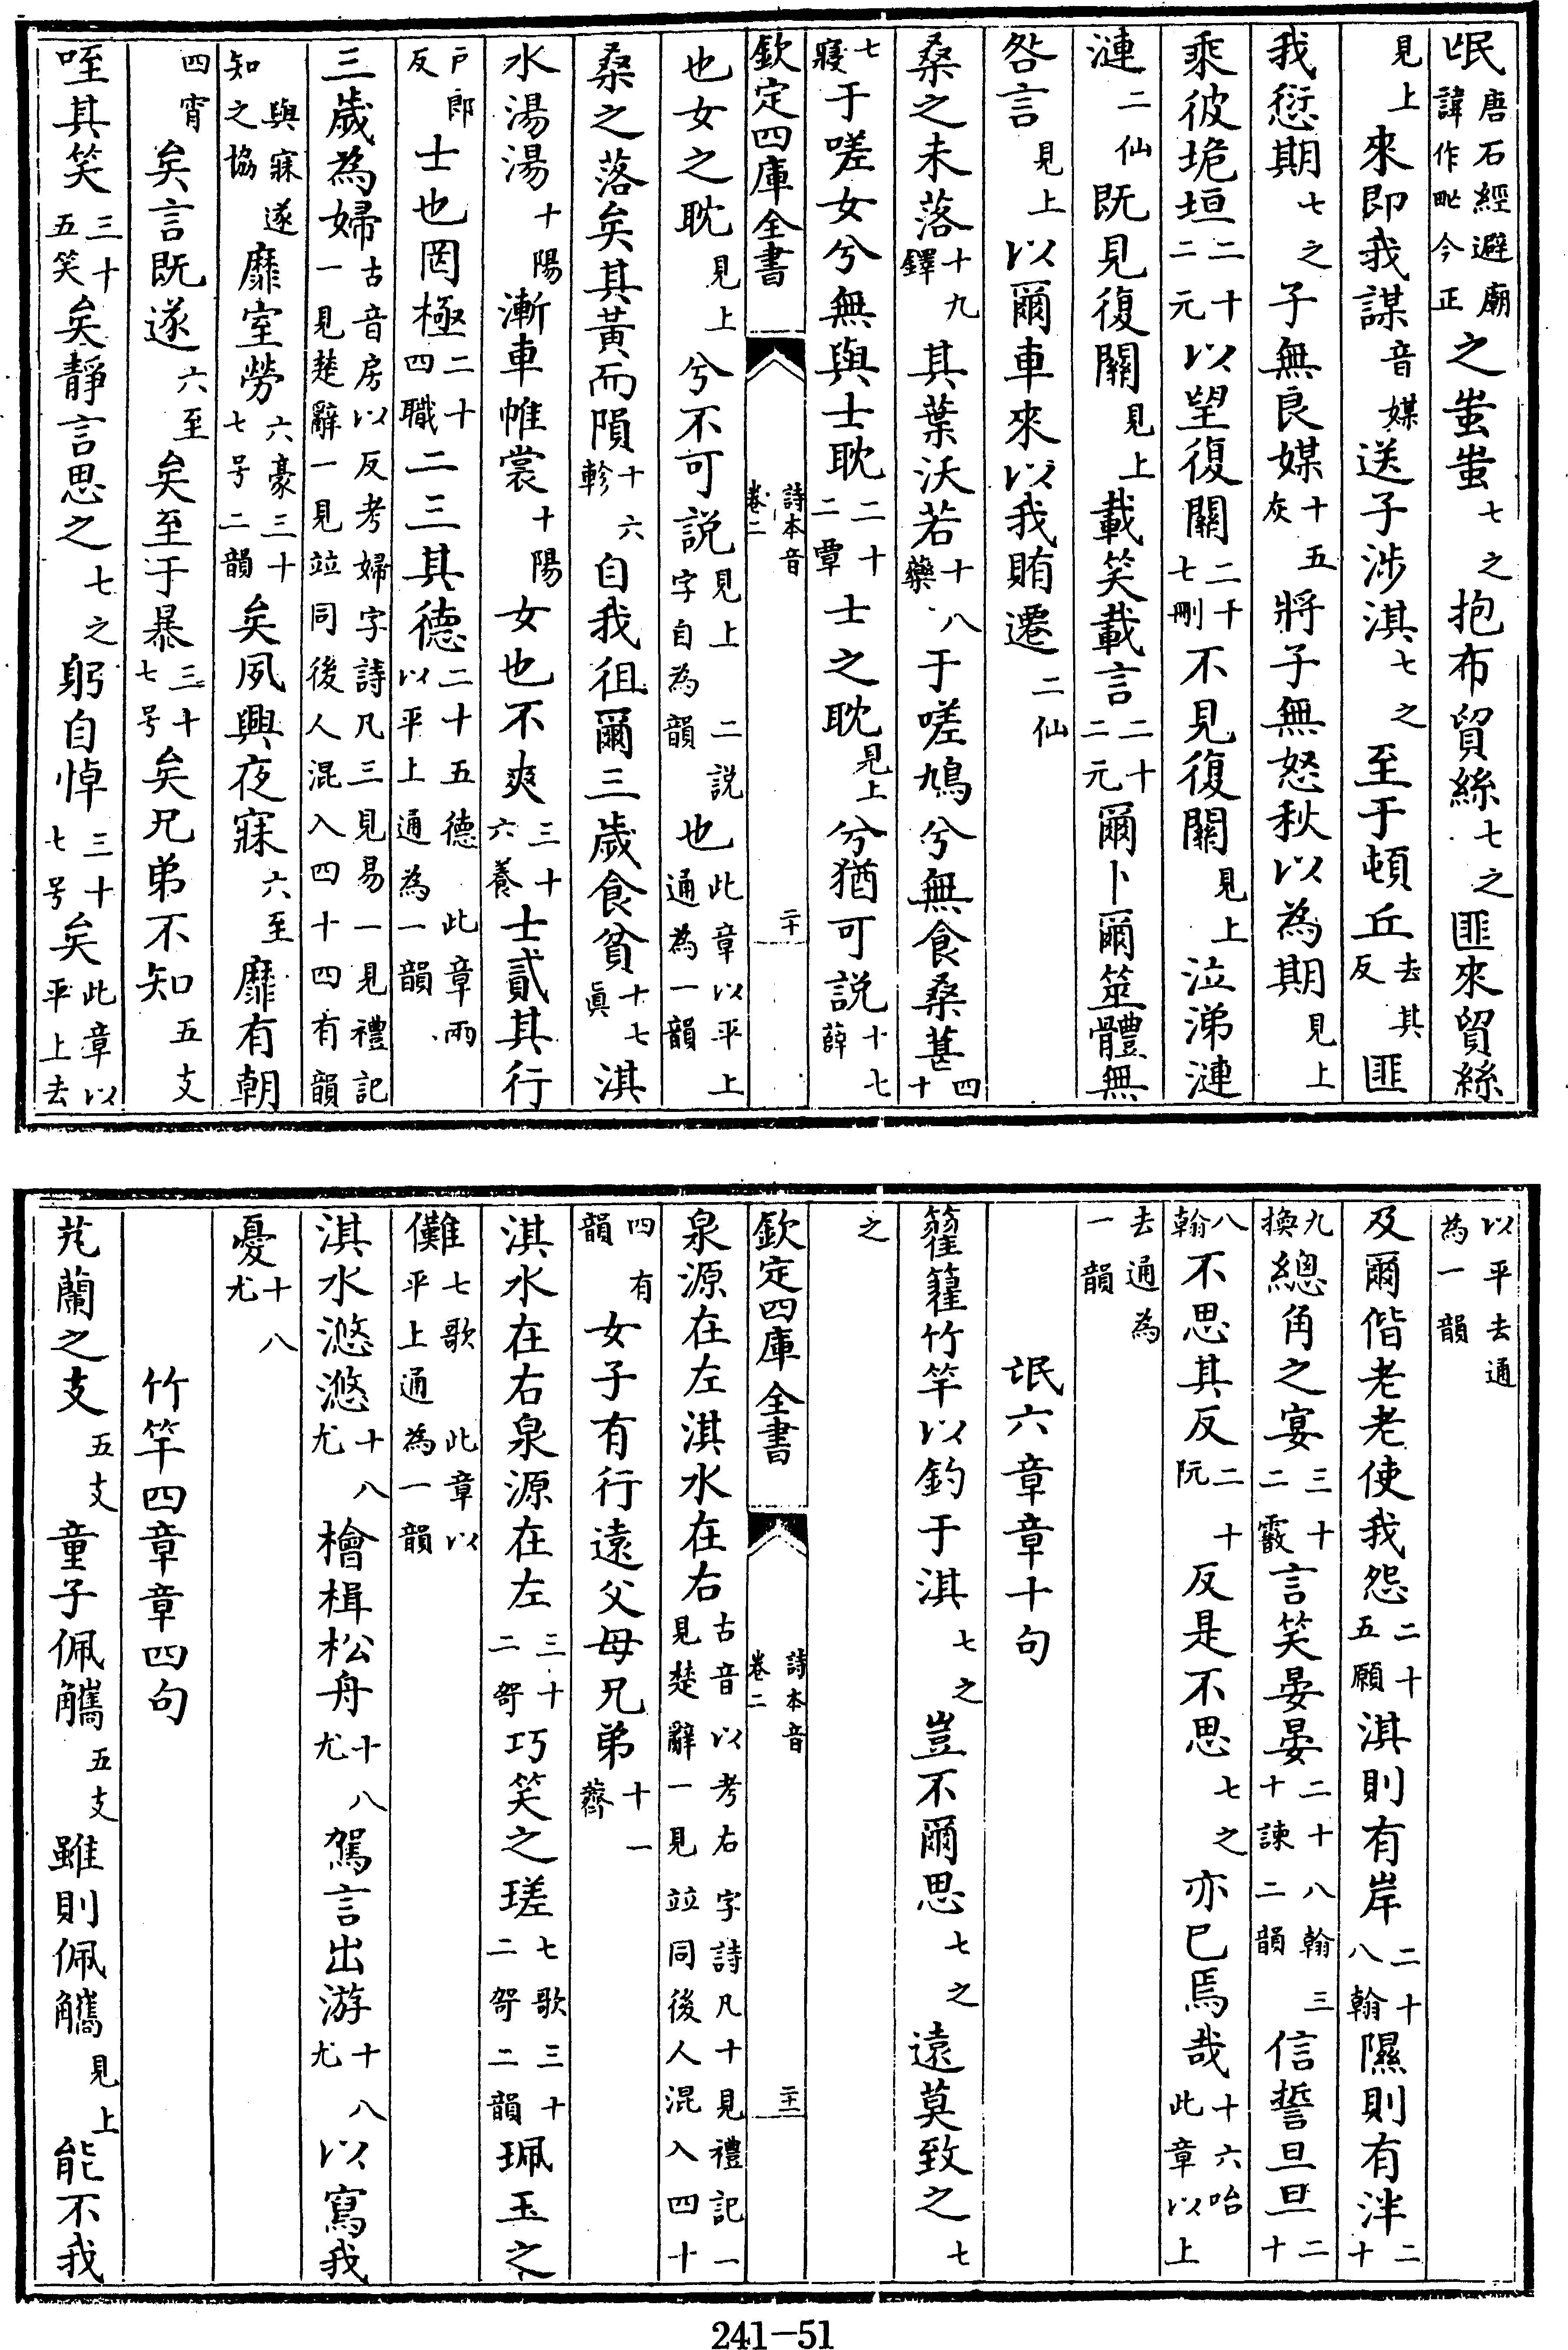 氓唐石經避廟諱作甿今正之蚩蚩七之抱布貿絲七之匪來貿絲
見上來即我謀音媒送子涉淇七之至于頓丘去其反匪
我愆期七之子無良媒十五灰將子無怒秋以為期見上
乘彼垝垣二十二元以望復關二十七刪不見復關見上泣涕漣
漣二仙既見復關見上載笑載言二十二元爾卜爾筮體無
咎言見上以爾車來以我賄遷二仙
桑之未落十九鐸其葉沃若十八藥于嗟鳩兮無食桑葚四十
七寢于嗟女兮無與士耽二十二覃士之耽見上兮猶可説十七薛
欽定四庫全書 詩本音卷二 二十
也女之耽見上兮不可説見上二説字自為韻也此章以平上通為一韻
桑之落矣其黄而隕十六軫自我徂爾三歲食貧十七真淇
水湯湯十陽漸車帷裳十陽女也不爽三十六養士貳其行
戸郎反士也罔極二十四職二三其德二十五德此章兩以平上通為一韻
三歲為婦古音房以反考婦字詩凡三見易一見禮記一見楚辭一見竝同後人混入四十四有韻
與寐遂知之協靡室勞六豪三十七号二韻矣夙興夜寐六至靡有朝
四宵矣言既遂六至矣至于暴三十七号矣兄弟不知五支
咥其笑三十五笑矣靜言思之七之躬自悼三十七号矣此章以平上去
以平去通為一韻
及爾偕老老使我怨二十五願淇則有岸二十八翰隰則有泮二十
九換總角之宴三十二霰言笑晏晏二十八翰三十諫二韻信誓旦旦二十
八翰不思其反二十阮反是不思七之亦已焉哉十六咍此章以上
去通為一韻
氓六章章十句
籊籊竹竿以釣于淇七之豈不爾思七之遠莫致之七
之
欽定四庫全書 詩本音卷二 二十一
泉源在左淇水在右古音以考右字詩凡十見禮記一見楚辭一見竝同後人混入四十
四有韻女子有行遠父母兄弟十一薺
淇水在右泉源在左三十二哿巧笑之瑳七歌三十二哿二韻珮玉之
儺七歌此章以平上通為一韻
淇水滺滺十八尤檜楫松舟十八尤駕言出游十八尤以寫我
憂十八尤
竹竿四章章四句
芄蘭之支五支童子佩觿五支雖則佩觿見上能不我
241-51